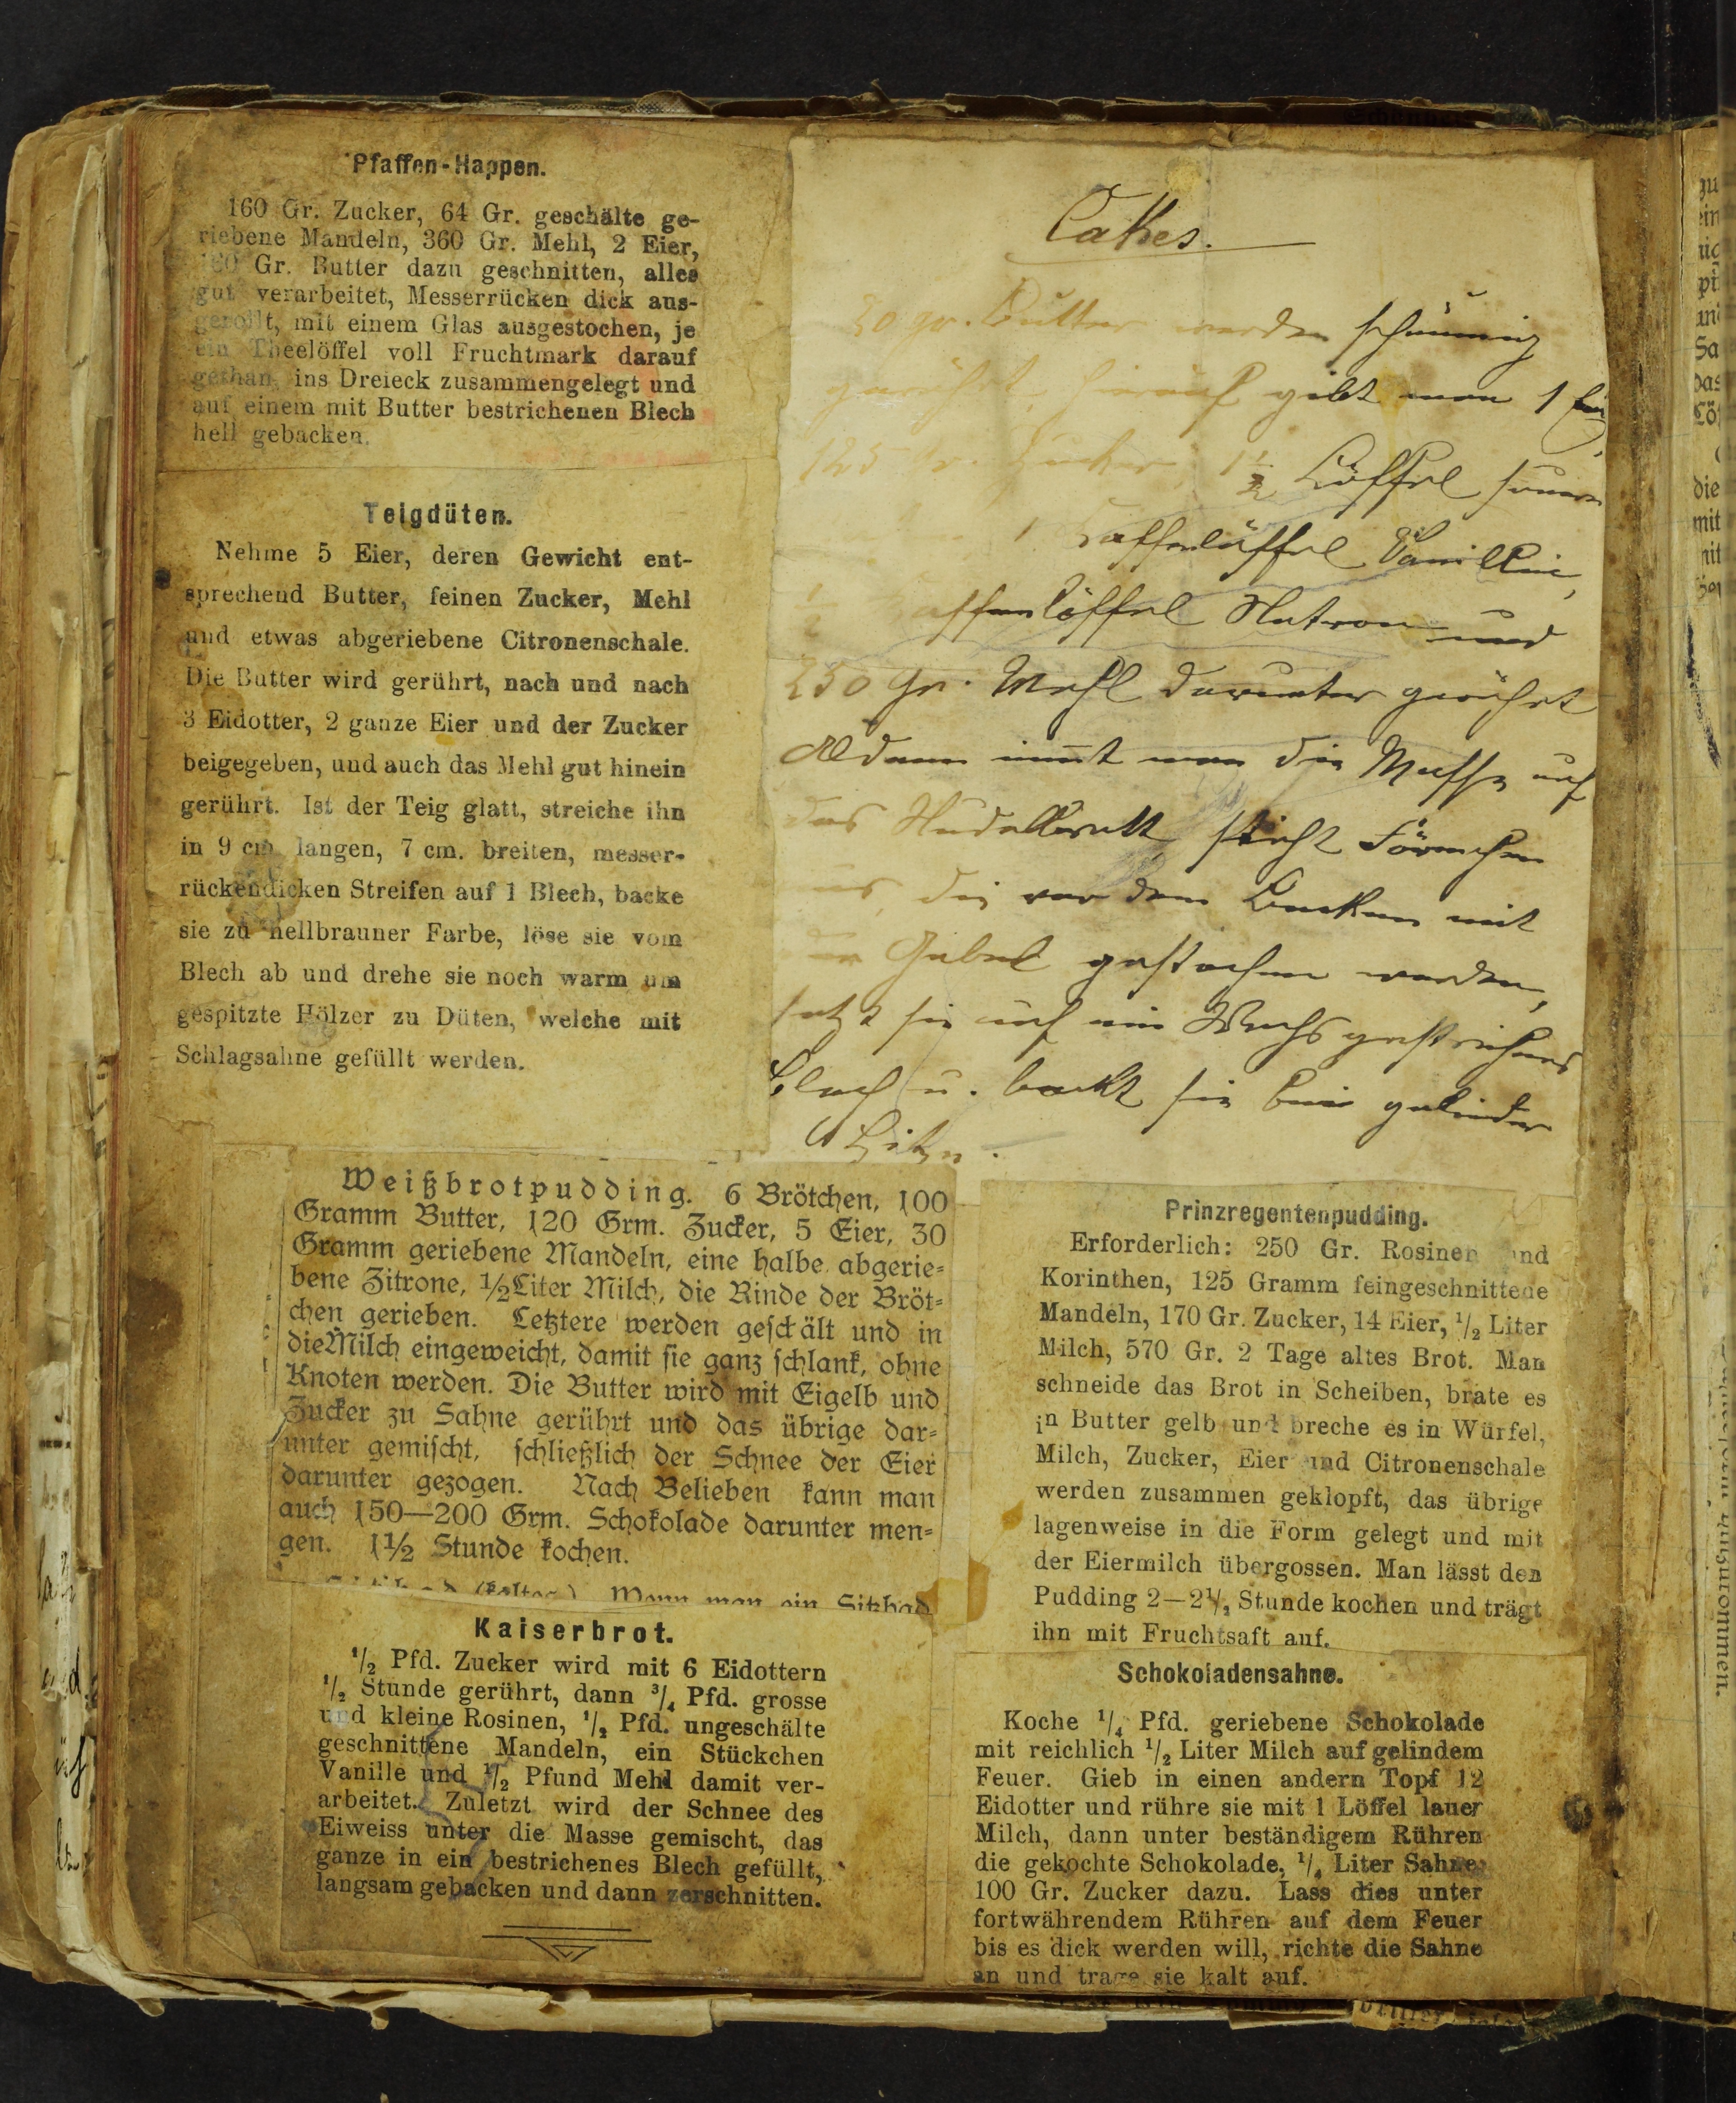 Pfaffen-Happen.
160 Gr. Zucker, 64 Gr. geschälte ge-
riebene Mandeln, 360 Gr. Mehl, 2 Eier,
Gr. Butter dazu geschnitten, alles
gut verarbeitet, Messerrücken dick aus-
gerollt, mit einem Glas ausgestochen, je
ein Theelöffel voll Fruchtmark darauf
gethan, ins Dreieck zusammengelegt und
auf einem mit Butter bestrichenen Blech
hell gebacken.
Teigdüten.
Nehme 5 Eier, deren Gewicht ent-
sprechend Butter, feinen Zucker, Mehl
und etwas abgeriebene Citronenschale.
Die Butter wird gerührt, nach und nach
3 Eidotter, 2 ganze Eier und der Zucker
beigegeben, und auch das Mehl gut hinein
gerührt. Ist der Teig glatt, streiche ihn
in 9 cm langen, 7 cm. breiten, messer-
rückendicken Streifen auf 1 Blech, backe
sie zu hellbrauner Farbe, löse sie vom
Blech ab und drehe sie noch warm um
gespitzte Hölzer zu Düten, welche mit
Schlagsahne gefüllt werden.
Cakes.
50 gr. Butter werden schaumig
gerührt, hierauf gibt man 1 Ei,
125 Gr. Zucker, 1 1/2 Löffel sauern
1 Kaffeelöffel Vanillin,
1/2 Kaffeelöffel Natron und
250 Gr. Mehl darunter gerührt
Aldann nim̅t man die Masse auf
das Nudelbrett sticht Förmchen
aus, die vor dem Backen mit
der Gabel gestochen werden,
setzt sie auf ein Wachs gestrichens
Blech u. backt sie bei gelinder
Hitze.
Weißbrotpudding. 6 Brötchen, 100
Gramm Butter, 120 Grm. Zucker, 5 Eier, 30
Gramm geriebene Mandeln, eine halbe abgerie-
bene Zitrone, 1/2 Liter Milch, die Rinde der Bröt-
chen gerieben. Letztere werden geschält und in
die Milch eingeweicht, damit sie ganz schlank, ohne
Knoten werden. Die Butter wird mit Eigelb und
Zucker zu Sahne gerührt und das übrige dar-
unter gemischt, schließlich der Schnee der Eier
darunter gezogen. Nach Belieben kann man
auch 150—200 Grm. Schokolade darunter men-
gen. 1 1/2 Stunde kochen.
(kaltes) Wenn man ein Sitzbad
Kaiserbrot.
1/2 Pfd. Zucker wird mit 6 Eidottern
1/2 Stunde gerührt, dann 3/4 Pfd. grosse
und kleine Rosinen, 1/2 Pfd. ungeschälte
geschnittene Mandeln, ein Stückchen
Vanille und 1/2 Pfund Mehl damit ver-
arbeitet. Zuletzt wird der Schnee des
Eiweiss unter die Masse gemischt, das
ganze in ein bestrichenes Blech gefüllt,
langsam gebacken und dann zerschnitten.
Prinzregentenpudding.
Erforderlich: 250 Gr. Rosinen und
Korinthen, 125 Gramm feingeschnittene
Mandeln, 170 Gr. Zucker, 14 Eier, 1/2 Liter
Milch, 570 Gr. 2 Tage altes Brot. Man
schneide das Brot in Scheiben, brate es
in Butter gelb und breche es in Würfel,
Milch, Zucker, Eier und Citronenschale
werden zusammen geklopft, das übrige
lagenweise in die Form gelegt und mit
der Eiermilch übergossen. Man lässt den
Pudding 2—2 1/2 Stunde kochen und trägt
ihn mit Fruchtsaft auf.
Schokoladensahne.
Koche 1/4 Pfd. geriebene Schokolade
mit reichlich 1/2 Liter Milch auf gelindem
Feuer. Gieb in einen andern Topf 12
Eidotter und rühre sie mit 1 Löffel lauer
Milch, dann unter beständigem Rühren
die gekochte Schokolade, 1/4 Liter Sahne,
100 Gr. Zucker dazu. Lass dies unter
fortwährendem Rühren auf dem Feuer
bis es dick werden will, richte die Sahne
an und trage sie kalt auf.